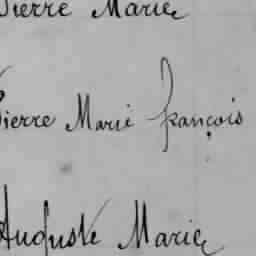 Pierre Marie
Pierre Marie françois
Auguste Marie